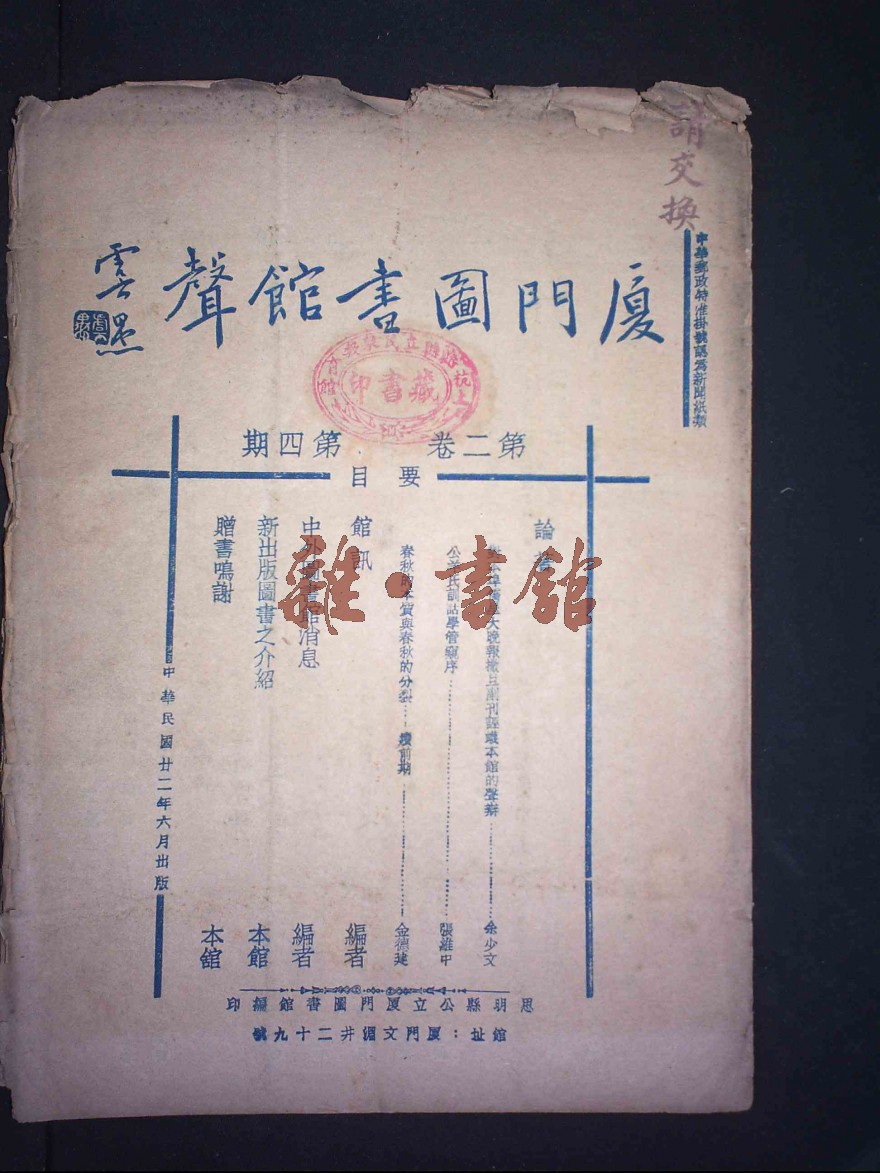 請交換
中華郵政特准掛號認為新聞紙類
廈門圖書館聲
雲墨
第二卷 第四期
要目
論
大晚報 副刊 本館的聲辯……余少文
公羊氏訓詁學管窺序……張維中
春秋的本質與春秋的分裂……續前期……金德建
館訊 編者
中外圖書館消息 編者
新出版圖書之介紹 本館
贈書鳴謝 本館
中華民國廿二年六月出版
思明縣公立廈門圖書館編印
館址：廈門文淵井二十九號
藏書印
雜·書館